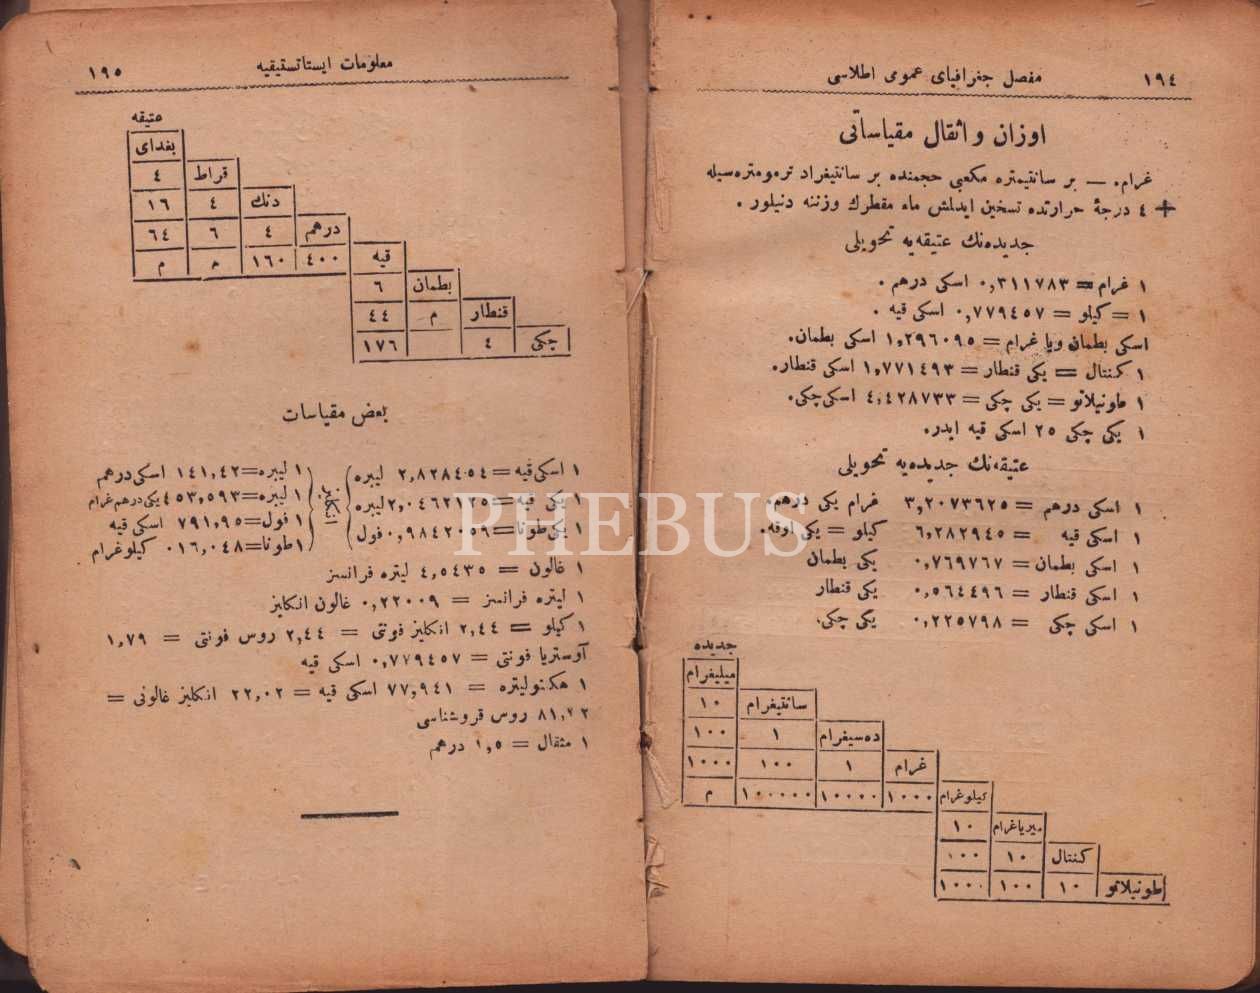 ١٩٤ مفصل جغرافیای عمومی اطلاسی
اوزان و اثقال مقیاساتی
غرام. — بر سانتیمتره مکعبی حجمنده بر سانتیغراد ترمومتره سیله
+ ٤ درجهٔ حرارتده تسخین ایدلمش ماء مقطرك وزننه دنیلور .
جدیده نك عتیقه یه تحویلی
١ غرام = ٠,٣١١٧٨٣ اسکی درهم .
١ = کیلو = ٠,٧٧٩٤٥٧ اسکی قیه .
اسکی بطمان ویا غرام = ١,٢٩٦٠٩٥ اسکی بطمان.
١ کنتال = یکی قنطار = ١,٧٧١٤٩٣ اسکی قنطار.
١ طونیلاتو = یکی چکی = ٤,٤٢٨٧٣٣ اسکی چکی.
١ یکی چکی ٢٥ اسکی قیه ایدر.
عتیقه نك جدیده یه تحویلی
١ اسکی درهم = ٣,٢٠٧٣٦٢٥ غرام یکی درهم.
١ اسکی قیه = ٦,٢٨٢٩٤٥ کیلو = یکی اوقه.
١ اسکی بطمان = ٠,٧٦٩٧٦٧ یکی بطمان
١ اسکی قنطار = ٠,٥٦٤٤٩٦ یکی قنطار
١ اسکی چکی = ٠,٢٢٥٧٩٨ یکی چکی.
جدیده
میلیغرام
١٠ سانتیغرام
١٠٠ ١ ده سیغرام
١٠٠٠ ١٠٠ ١ غرام
م ١٠٠٠٠٠ ١٠٠٠٠ ١٠٠٠ کیلوغرام
١٠ میریاغرام
١٠٠ ١٠ کنتال
١٠٠٠ ١٠٠ ١٠ طونیلاتو
معلومات ایستاتستیقیه ١٩٥
عتیقه
بغدای
٤ قراط
١٦ ٤ دنك
٦٤ ٦ ٤ درهم
م م ١٦٠ ٤٠٠ قیه
٦ بطمان
٤٤ م قنطار
١٧٦ ٤ چکی
بعض مقیاسات
١ اسکی قیه = ٢,٨٢٨٤٥٤ لیبره
١ یکی قیه = ٢,٠٤٦٢١٢٥ لیبره
١ یکی طونا = ٠,٩٨٤٢٠٥٩ فول
انکلیز
١ لیبره = ١٤١,٤٢ اسکی درهم
١ لیبره = ٤٥٣,٥٩٣ یکی درهم غرام
١ فول = ٧٩١,٩٥ اسکی قیه
١ طونا = ٠١٦,٠٤٨ کیلوغرام
١ غالون = ٤,٥٤٣٥ لیتره فرانسز
١ لیتره فرانسز = ٠,٢٢٠٠٩ غالون انکلیز
١ کیلو = ٢,٤٤ انکلیز فونتی = ٢,٤٤ روس فونتی = ١,٧٩
آوستریا فونتی = ٠,٧٧٩٤٥٧ اسکی قیه
١ هکتولیتره = ٧٧,٩٤١ اسکی قیه = ٢٢,٠٢ انکلیز غالونی =
٨١,٢٢ روس قروشناسی
١ مثقال = ١,٥ درهم
PHEBUS